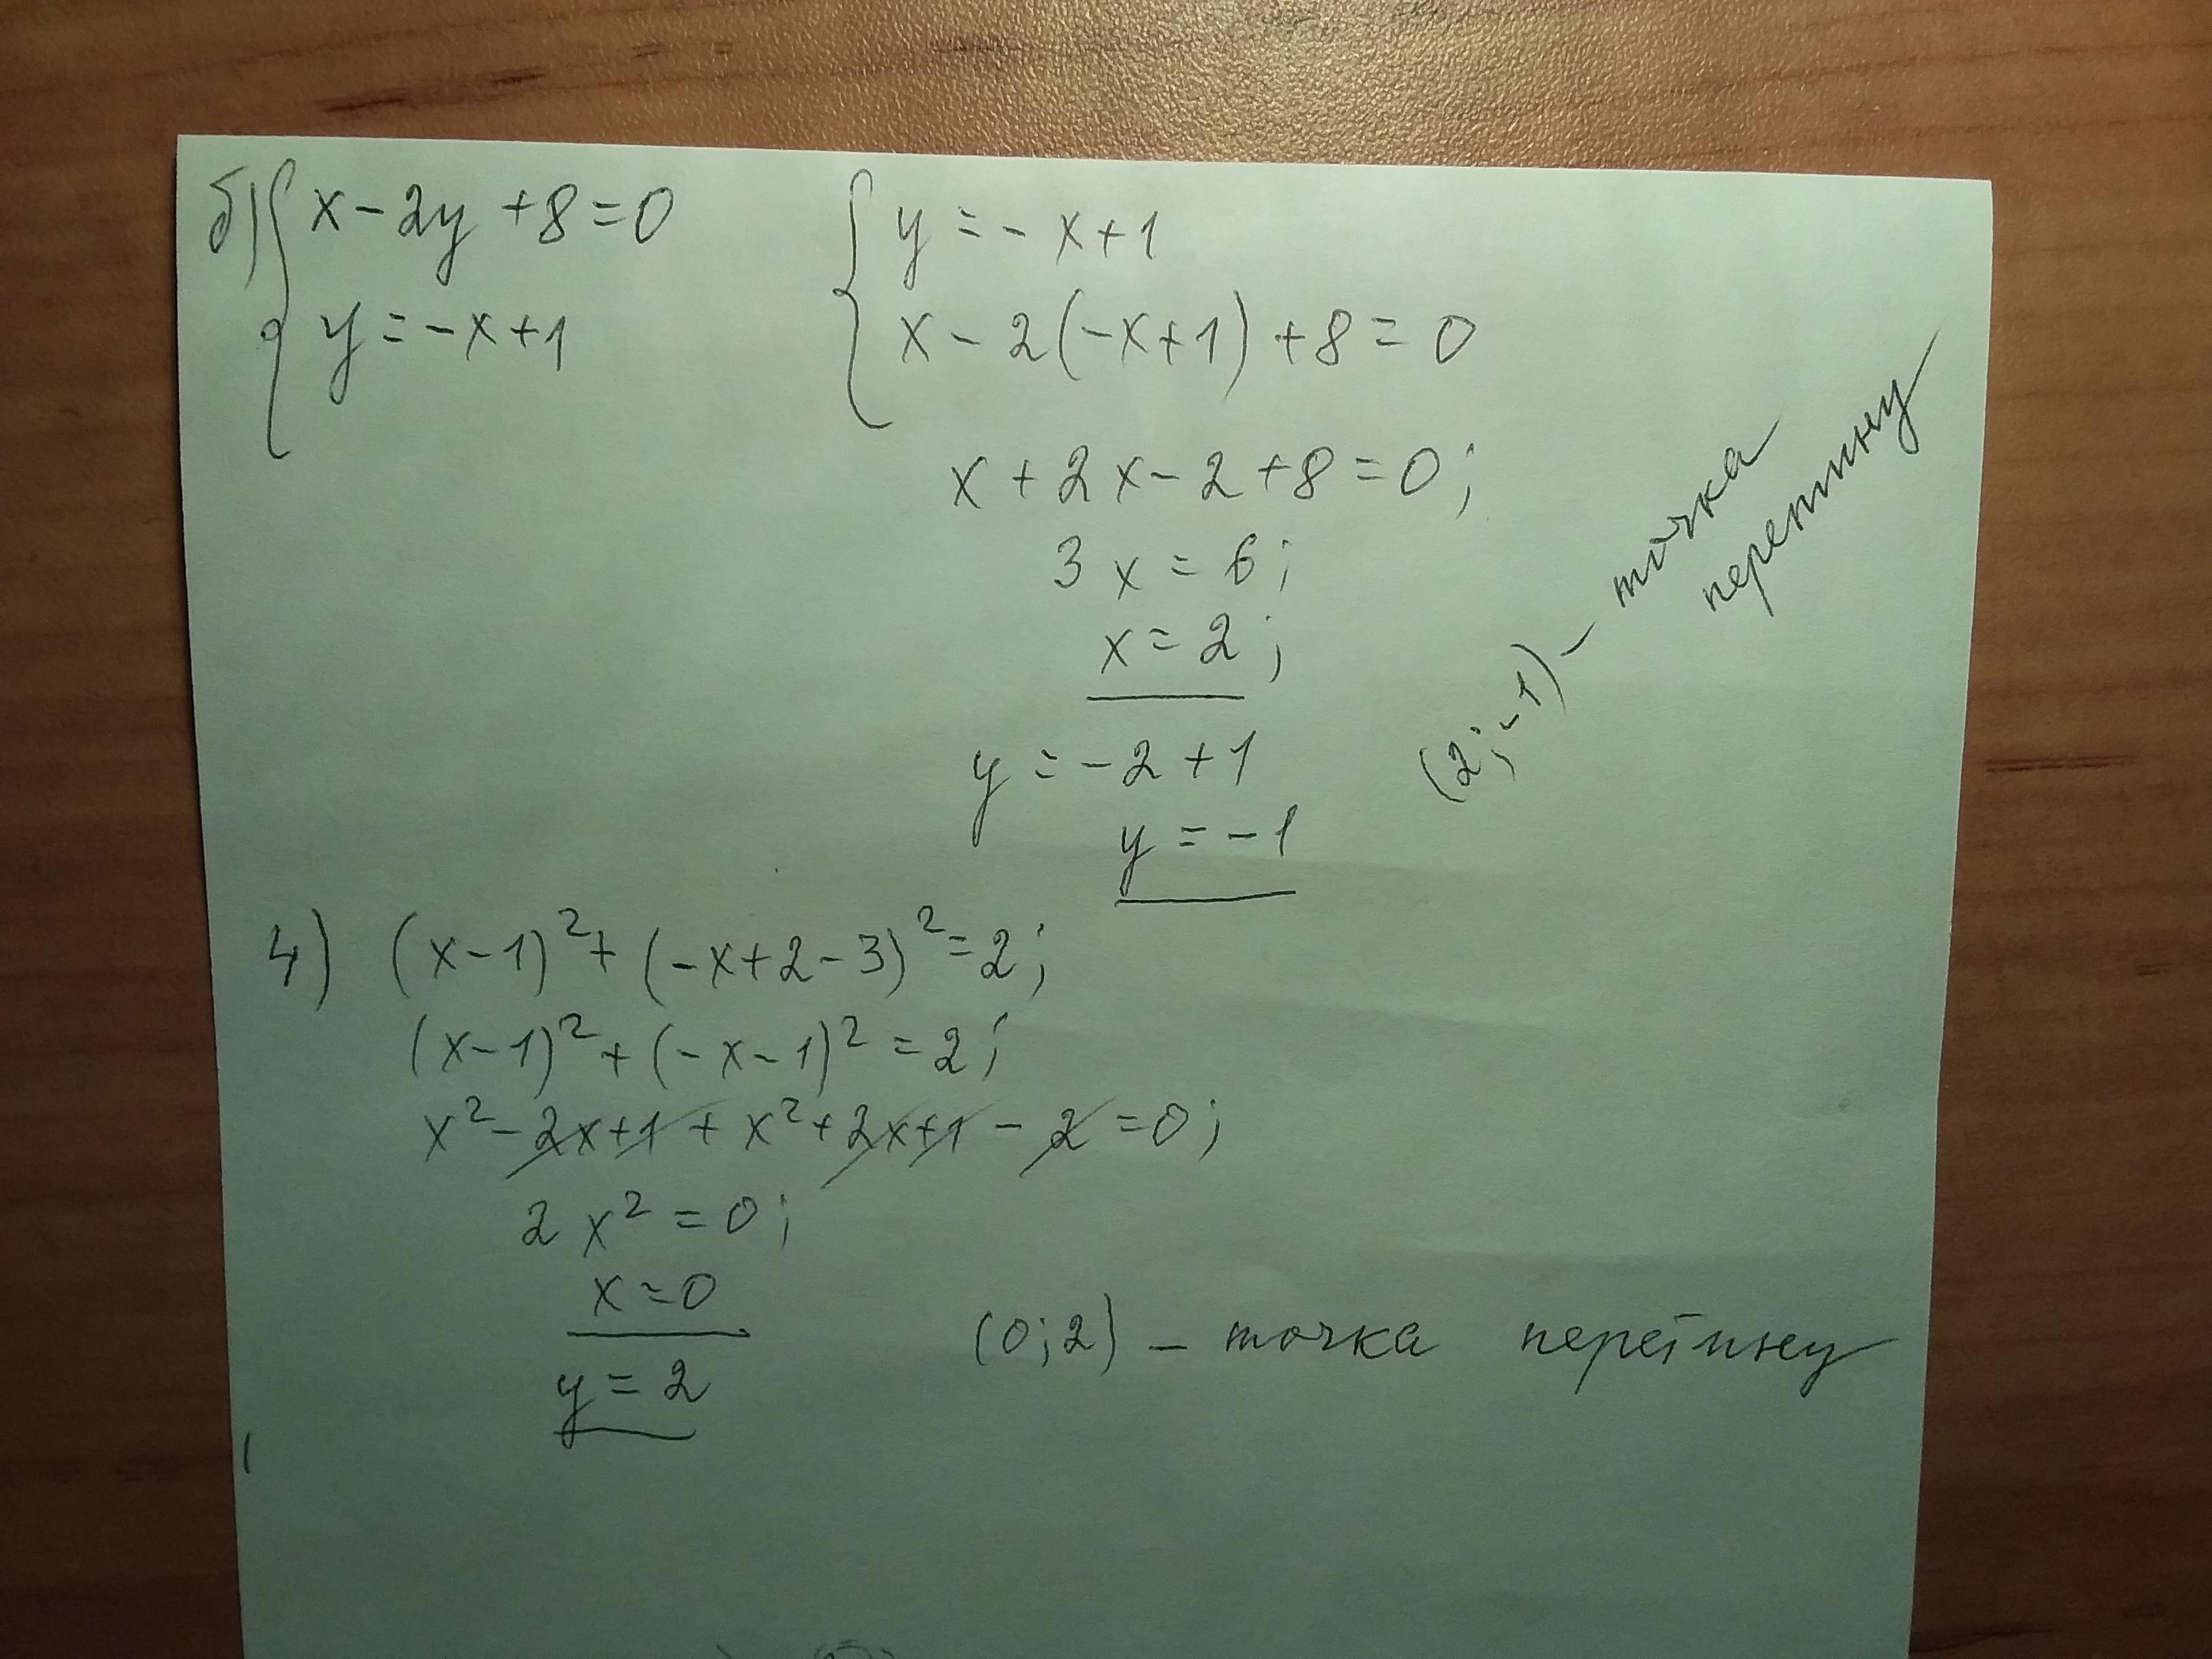 б) { x - 2y + 8 = 0
y = -x + 1
{ y = - x + 1
x - 2(-x+1) + 8 = 0
x + 2x - 2 + 8 = 0;
3x = 6;
x = 2;
y = -2 + 1
y = -1
(2; -1) - точка
перетину
4) (x-1)² + (-x+2-3)² = 2;
(x-1)² + (-x-1)² = 2;
x² - 2x + 1 + x² + 2x + 1 - 2 = 0;
2x² = 0;
x = 0
y = 2
(0; 2) - точка перетину